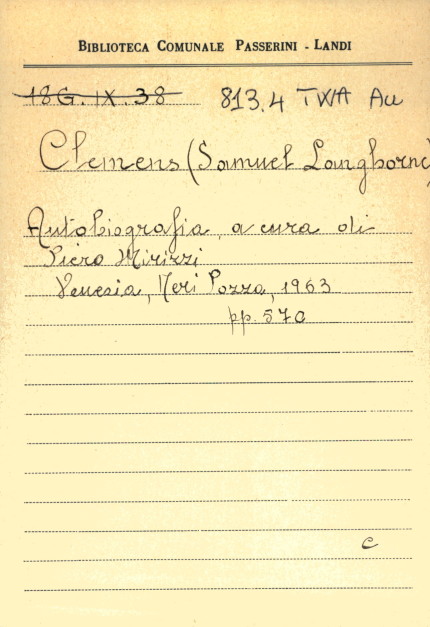 BIBLIOTECA COMUNALE PASSERINI - LANDI
18G. IX. 38 813.4 TWA Au
Clemens (Samuel Langhorne)
Autobiografia, a cura di
Piero Mirizzi
Venezia, Neri Pozza, 1963
pp. 570
c